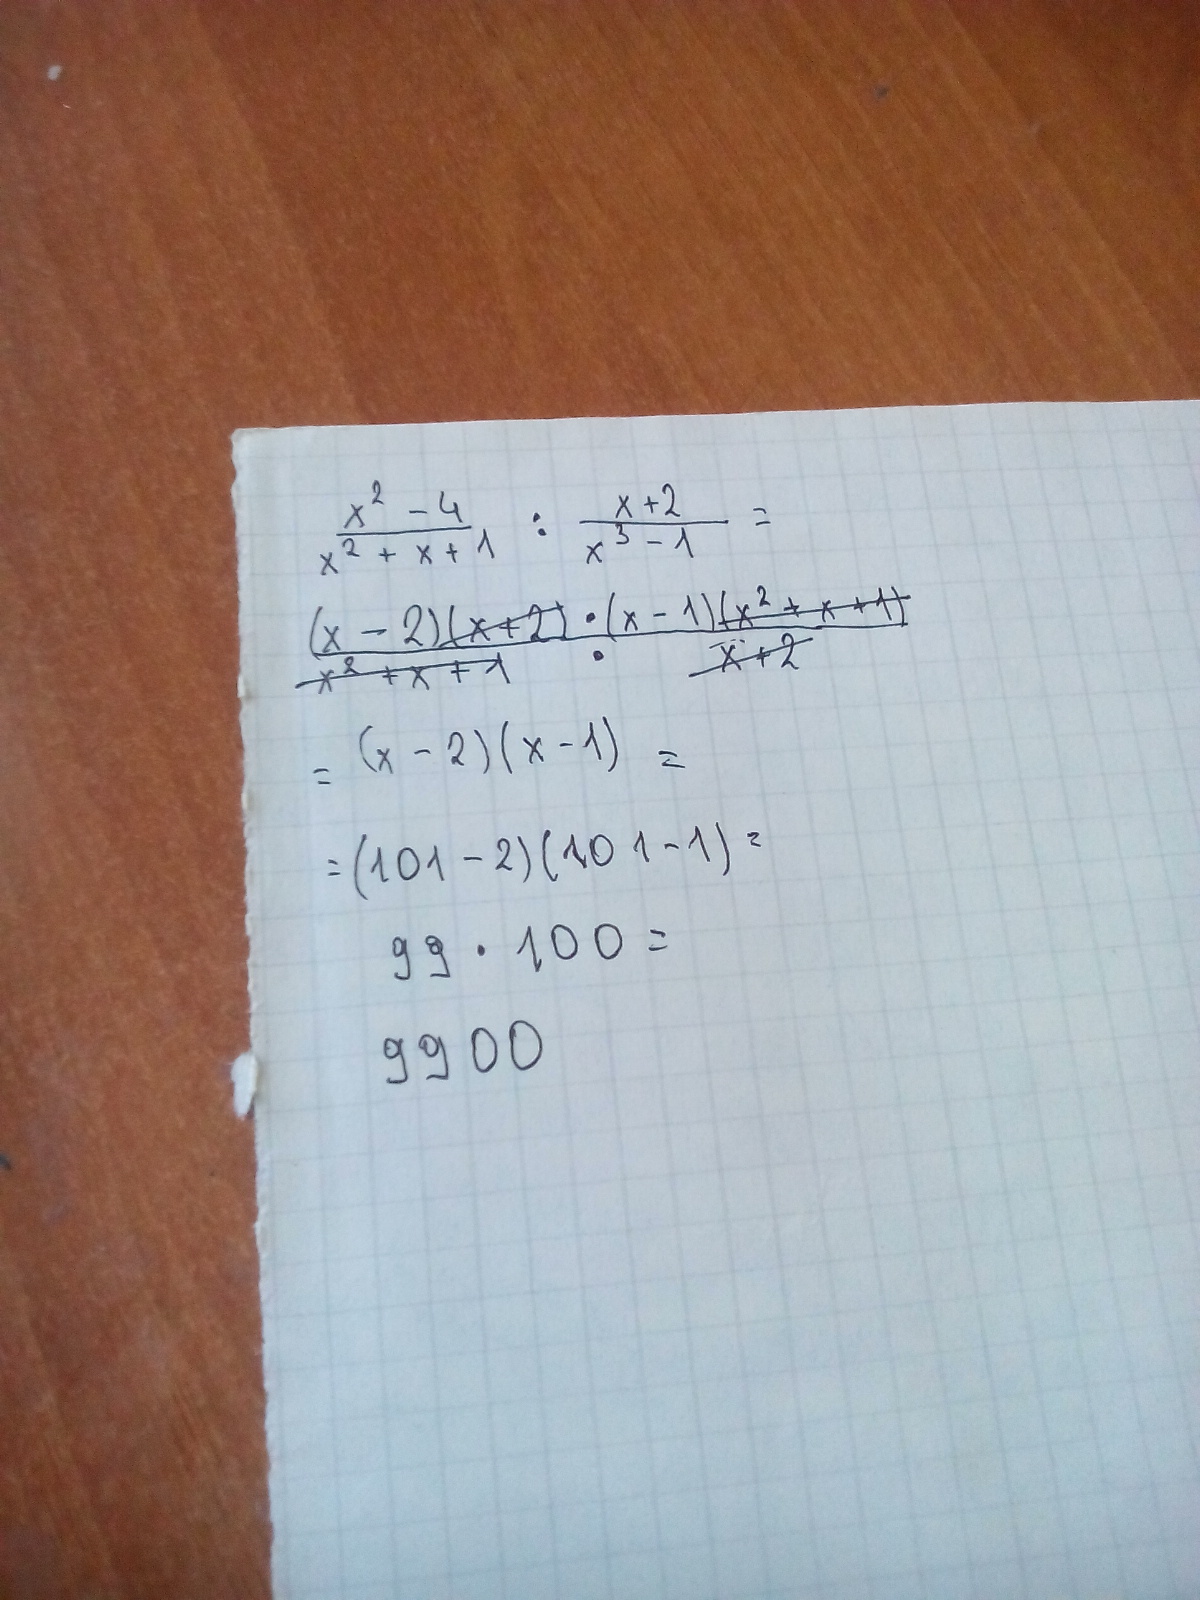 x² - 4 / x² + x + 1 : x + 2 / x³ - 1 =
(x - 2)(x + 2) · (x - 1)(x² + x + 1) / x² + x + 1 · x + 2
= (x - 2)(x - 1) =
= (101 - 2)(101 - 1) =
99 · 100 =
9900